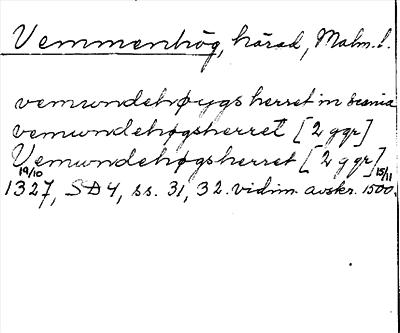 Vemmenhög, härad, Malm. l.
vemundehøygs herret in Scania
vemundehøgsherret [2 ggr]
Vemundehøgsherret [2 ggr]
19/10 15/11
1327, SD 4, ss. 31, 32. vidim. avskr. 1500.